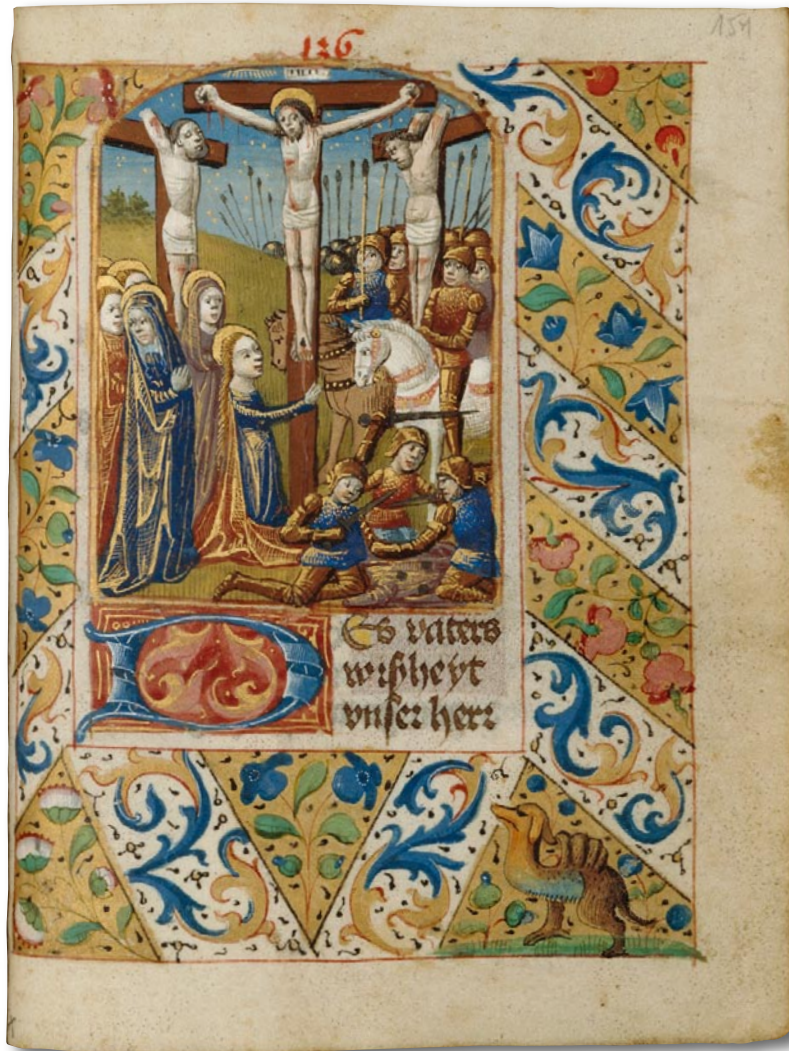 126
DEs vaters
wißheyt
vnser herr